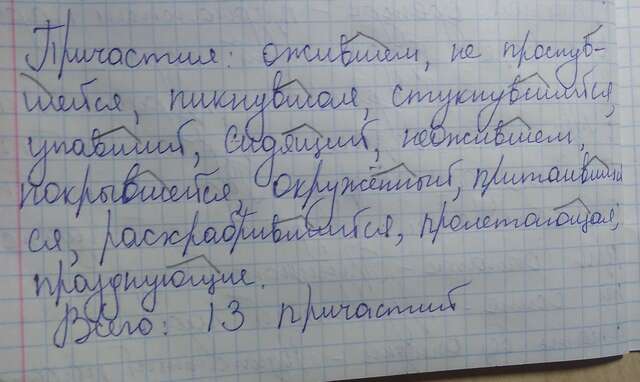 Причастия: ожившем, не проснув-
шейся, пикнувшая, стукнувшийся,
упавший, сидящий, неожившем,
покрывшейся, окружённый, притаивший
ся, расхрабрившийся, пролетающая,
празднующие.
Всего: 13 причастий